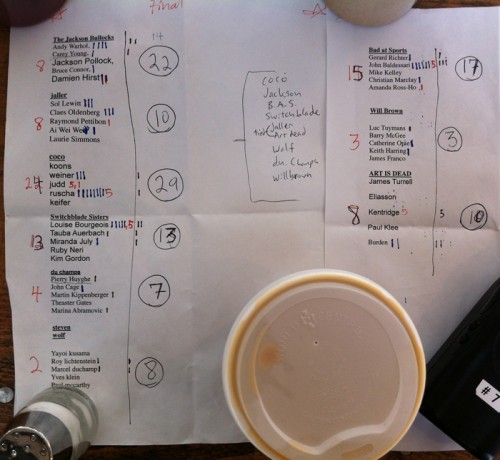 Final
The Jackson Bullocks
Andy Warhol,
Carey Young,
Jackson Pollock,
Bruce Connor,
Damien Hirst
8
14
22
jaller
Sol Lewitt
Claes Oldenberg
Raymond Pettibon
Ai Wei Wei
Laurie Simmons
8
10
coco
koons
weiner
judd 5,
ruscha 5
keifer
29
Switchblade Sisters
Louise Bourgeois 5
Tauba Auerbach
Miranda July
Ruby Neri
Kim Gordon
13
13
du champs
Pierre Huyghe
John Cage
Martin Kippenberger
Theaster Gates
Marina Abramovic
4
7
steven
wolf
Yayoi kusama
Roy lichtenstein
Marcel duchamp
Yves klein
Paul mccarthy
2
8
coco
Jackson
B.A.S
Switchblade
Jaller
Art dead
Wolf
du Champs
Will brown
Bad at Sports
Gerard Richter
John Baldessari 5
Mike Kelley
Christian Marclay
Amanda Ross-Ho
15
17
Will Brown
Luc Tuymans
Barry McGee
Catherine Opie
Keith Harring
James Franco
3
3
ART IS DEAD
James Turrell
Eliasson
Kentridge 5
Paul Klee
Burden
8
5
10
# 7